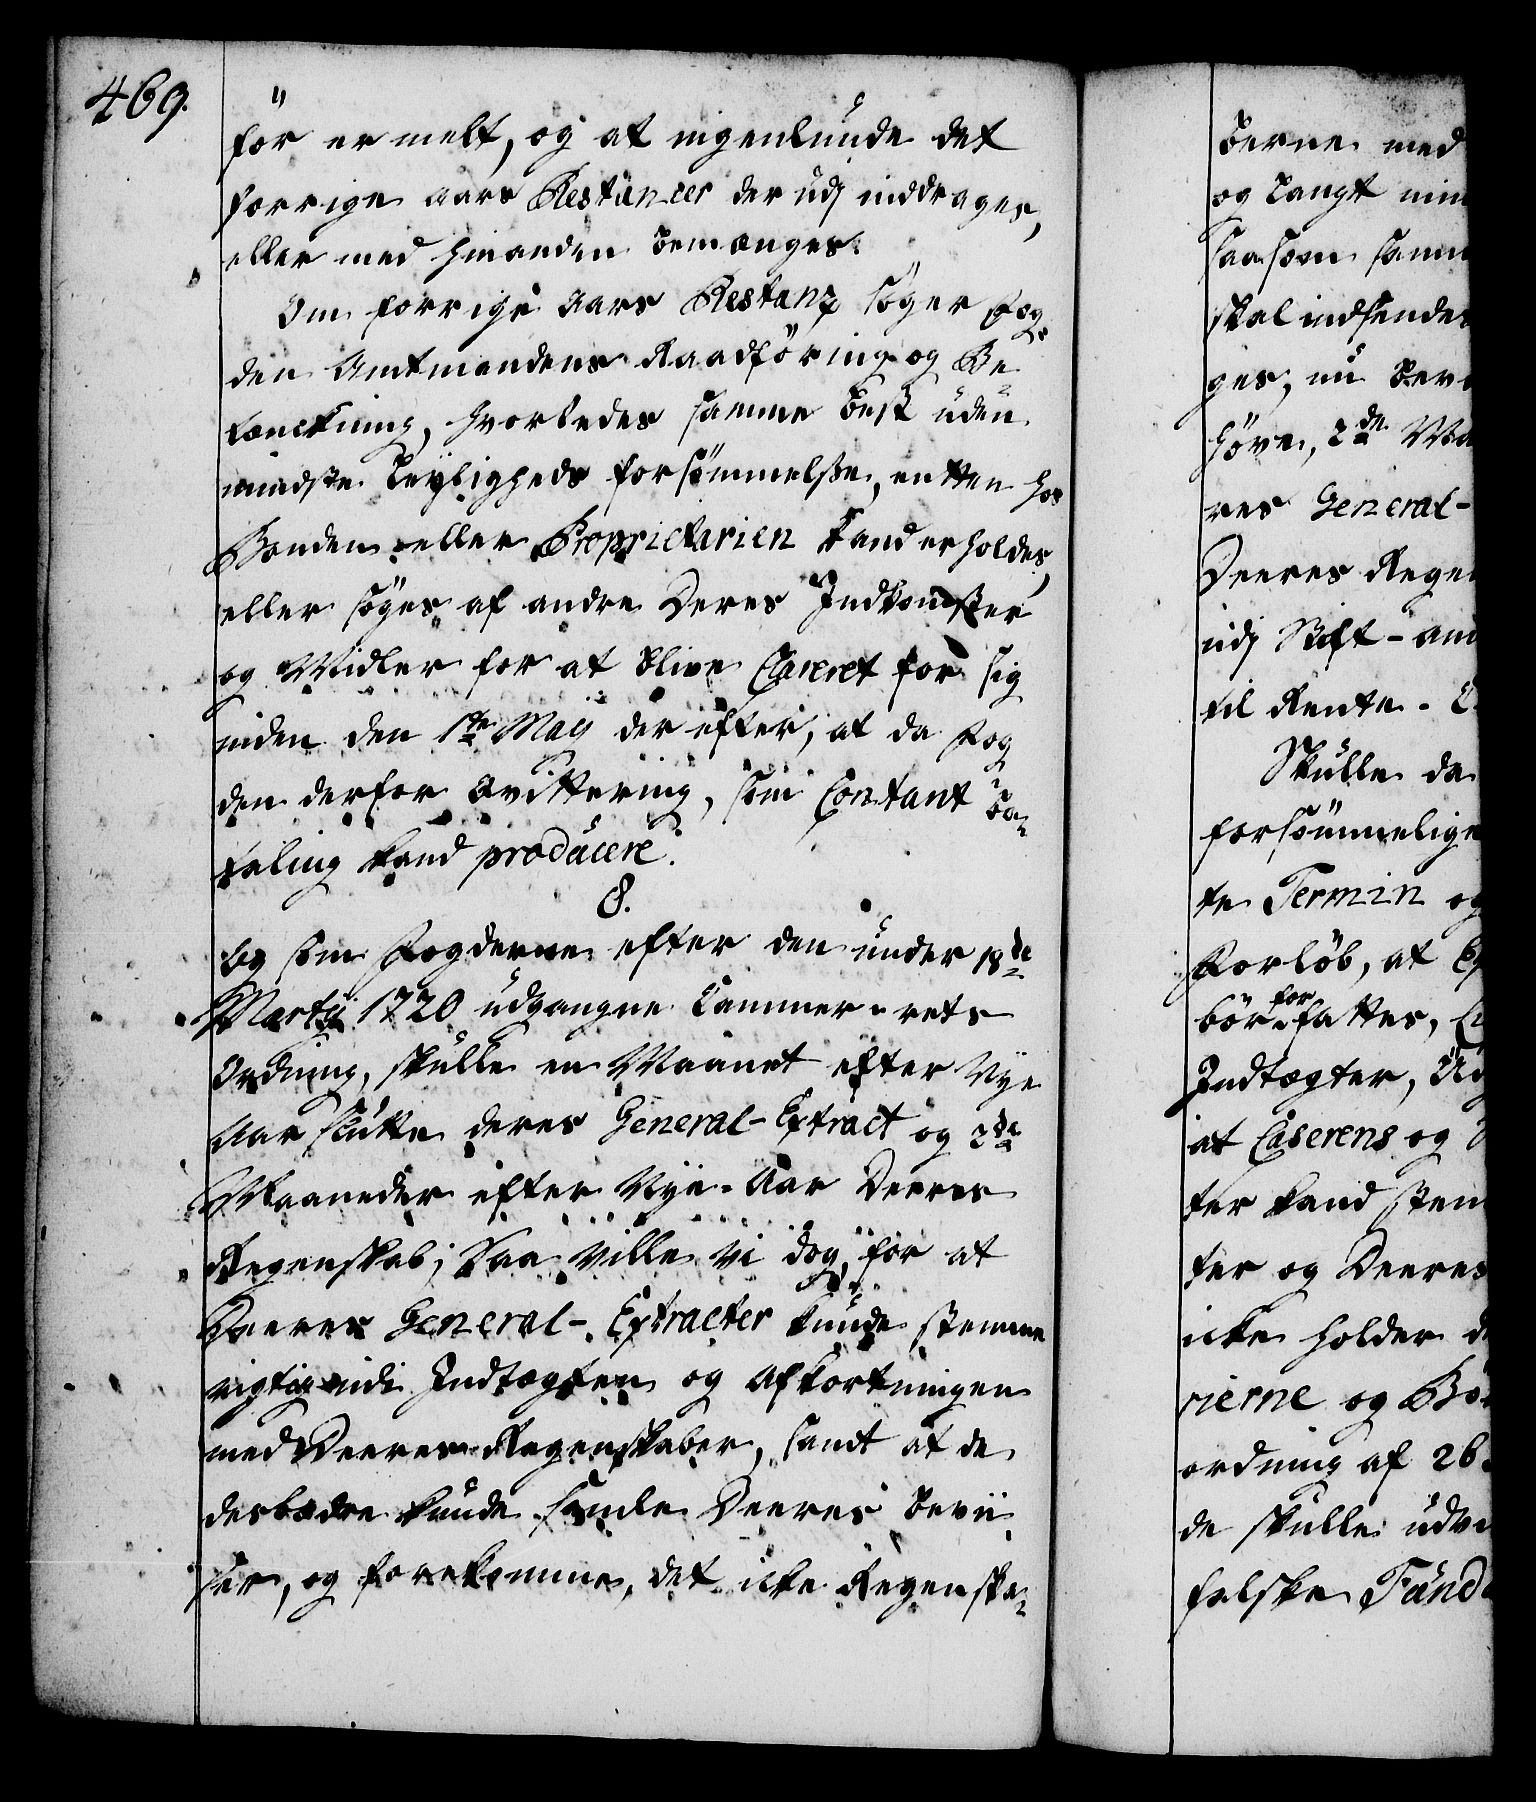 469.
för er melt, og at ingenlunde det
forrige aars Restancer der udj inddrages,
eller med hinanden bemænges.
Om forrige Aars Restanz söger Fog,
den Amtmandens Raadföring og Be
tænckning, hvorledes samme best uden
mindste Leyligheds forsömmelse, entten hos
Bonden eller Proprietarien kand erholdes,
eller söges af andre Deres Indkomster
og Midler for at blive Clareret for sig
inden den 1te Maij der efter, at da Fog
den derfor Qvittering, som Contant be,
taling kand producere.
8.
Og som Fogderne efter den under 18de
Martij 1720 udgangne Cammer-rets
Ordning, skulle en Maanet efter Nye
Aar slutte deres General-Extract og 2de
Maaneder efter Nye-Aar Deeres
Regenskab; Saa ville vi dog, for at
Deeres General-Extracter kunde stemme
rigtig udi Indtægten og Afkortningen
med Deeres Regenskaber, samt at de
desbædre kunde samle Deeres bevii
ser, og forekomme, det icke Regenska,
berne med
og langt min
saasom samm
skal indsendes
ges, nu bev
höve, 2de Ma
res General-
Deeres Regen
udj Stift-am
til Rente-C
Skulle da
forsömmelige
te Termin og
Forlöb, at Ex
bör for fattes,
Indtægter, Ud
at Caserens og
ter kand stem
ter og Deeres
icke holder de
rierne og Bön
ordning af 26
de skulle udve
falske Fund